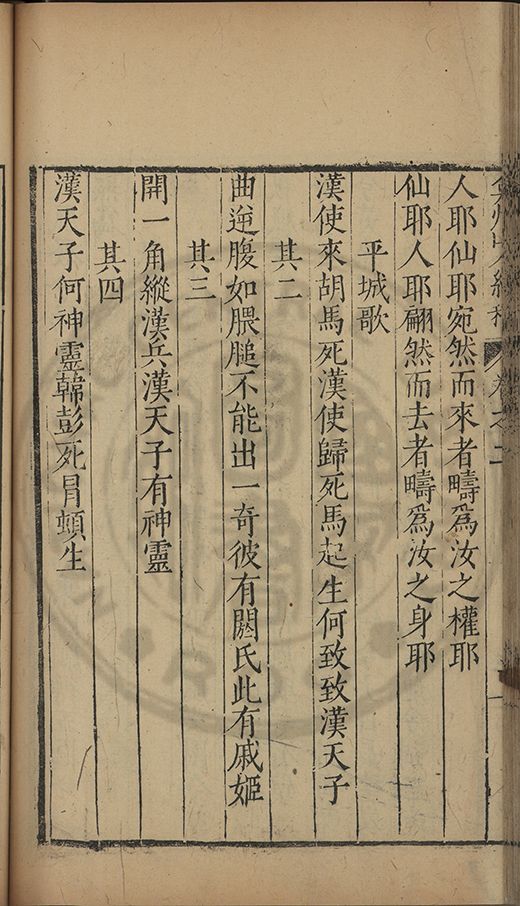 弇州山人續稿 卷之二
人耶仙耶宛然而來者疇爲汝之權耶
仙耶人耶翩然而去者疇爲汝之身耶
平城歌
漢使來胡馬死漢使歸死馬起生何致致漢天子
其二
曲逆腹如腲腿不能出一奇彼有閼氏此有戚姬
其三
開一角縱漢兵漢天子有神靈
其四
漢天子何神靈韓彭死冒頓生